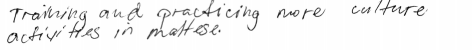 Training and practicing more culture
activities in maltese.